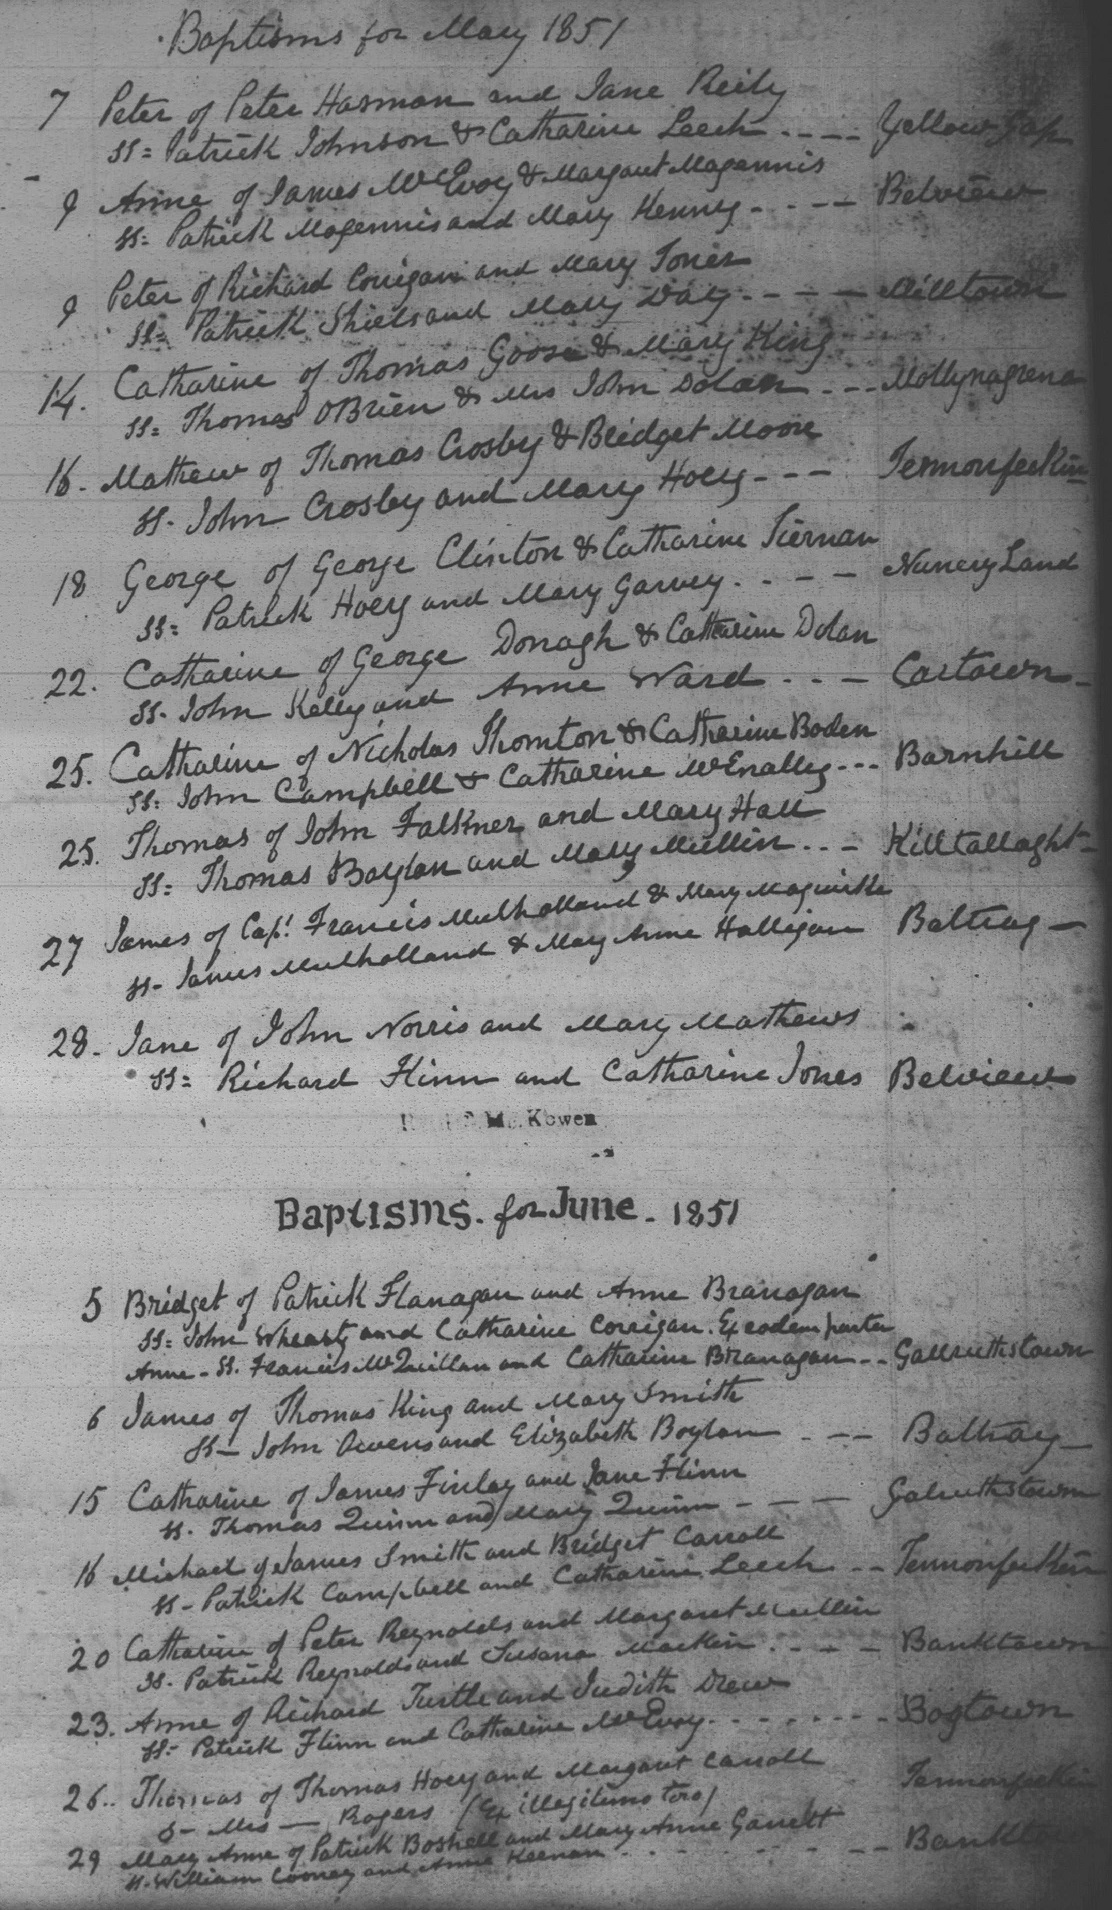 Baptisms for May 1851
7 Peter of Peter Hasman and Jane Reily
SS= Patrick Johnson & Catharine Leech ---- Yellow Gap
9 Anne of James McEvoy & Margaret Magennis
SS= Patrick Magennis and Mary Kenney ---- Belview
9 Peter of Richard Corrigan and Mary Jones
SS= Patrick Shiels and Mary Daly ---- Milltown
14. Catharine of Thomas Goose & Mary King
SS= Thomas OBrien & Mrs John Dolan --- Mollynagrena
16. Mathew of Thomas Crosby & Bridget Moore
SS- John Crosby and Mary Hoey --- Termonfeckin
18 George of George Clinton & Catharine Tiernan
SS= Patrick Hoey and Mary Garvey ---- Nunery Land
22. Catharine of George Donagh & Catharine Dolan
SS- John Kelly and Anne Ward --- Cartown -
25. Catharine of Nicholas Thornton & Catharine Boden
SS= John Campbell & Catharine McEnalley --- Barnhill
25. Thomas of John Falkner and Mary Hall
SS= Thomas Boylan and Mary Mullin --- Killtallaght -
27 James of Capt. Francis Mulholland & Mary
SS- James Mulholland & Mary Anne Halligan Baltray -
28. Jane of John Norris and Mary Mathews
SS= Richard Flinn and Catharine Jones Belview
Mc. Kowen
Baptisms. for June - 1851
5 Bridget of Patrick Flanagan and Anne Branagan
SS= John Whearty and Catharine Corrigan. Ex eodem partu
Anne - SS. Francis McQuillan and Catharine Branagan -- Galruthstown
6 James of Thomas King and Mary Smith
SS- John Owens and Elizabeth Boylan --- Baltray -
15 Catharine of James Finlay and Jane Flinn
SS. Thomas Quinn and Mary Quinn --- Galruthstown
16 Michael of James Smith and Bridget Carroll
SS- Patrick Campbell and Catharine Leech -- Termonfeckin
20 Catharine of Peter Reynolds and Margaret Mullin
SS. Patrick Reynolds and Susana Mackin ---- Banktown
23. Anne of Richard Turtle and Judith Drew
SS- Patrick Flinn and Catharine McEvoy ------- Bogtown
26.. Thomas of Thomas Hoey and Margaret Carroll Termonfeckin
S- Mrs - Rogers / Ex illegitimo toro /
29 Mary Anne of Patrick Boshell and Mary Anne Garrett
SS- William Cooney and Anne Keenan ------